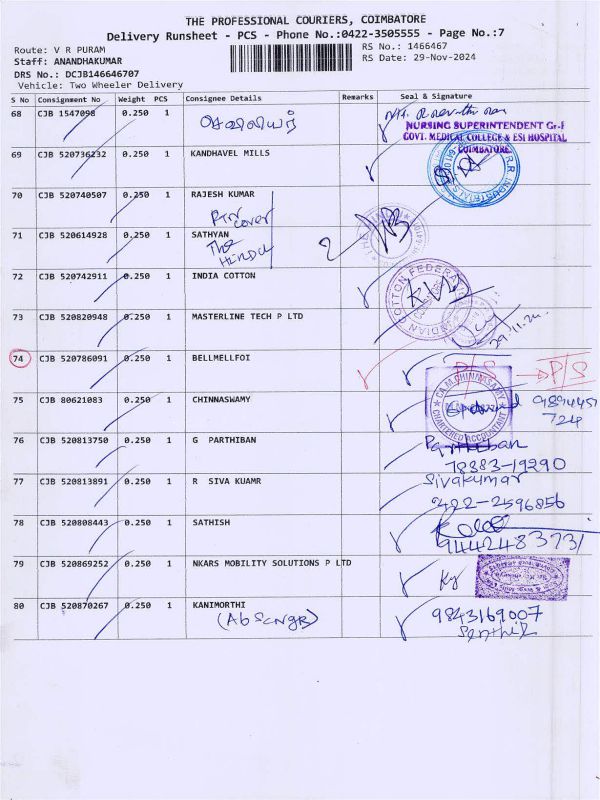 THE PROFESSIONAL COURIERS, COIMBATORE
Delivery Runsheet - PCS - Phone No.:0422-3505555 - Page No.:7
Route: V R PURAM
RS No.: 1466467
Staff: ANANDHAKUMAR
RS Date: 29-Nov-2024
DRS No.: DCJB146646707
Vehicle: Two Wheeler Delivery
S No Consignment No Weight PCS Consignee Details Remarks Seal & Signature
68 CJB 1547098 0.250 1
NURSING SUPERINTENDENT Gr-I
GOVT. MEDICAL COLLEGE & ESI HOSPITAL
COIMBATORE.
69 CJB 520736232 0.250 1 KANDHAVEL MILLS
R.R. INDUSTRIALS
70 CJB 520740507 0.250 1 RAJESH KUMAR
RTN cover
71 CJB 520614928 0.250 1 SATHYAN
The HINDU
72 CJB 520742911 0.250 1 INDIA COTTON
INDIAN COTTON FEDERATION
73 CJB 520820948 0.250 1 MASTERLINE TECH P LTD
29.11.24
74 CJB 520786091 0.250 1 BELLMELLFOI
P/S → P/S
75 CJB 80621083 0.250 1 CHINNASWAMY
CA.M.CHINNASAMY
CHARTERED ACCOUNTANT
9894457
724
76 CJB 520813750 0.250 1 G PARTHIBAN
Parthiban
78383-19290
77 CJB 520813891 0.250 1 R SIVA KUAMR
Sivakumar
0422-2596856
78 CJB 520808443 0.250 1 SATHISH
9442483731
79 CJB 520869252 0.250 1 NKARS MOBILITY SOLUTIONS P LTD
80 CJB 520870267 0.250 1 KANIMORTHI
(Ab Scngr)
9843169007
Senthil